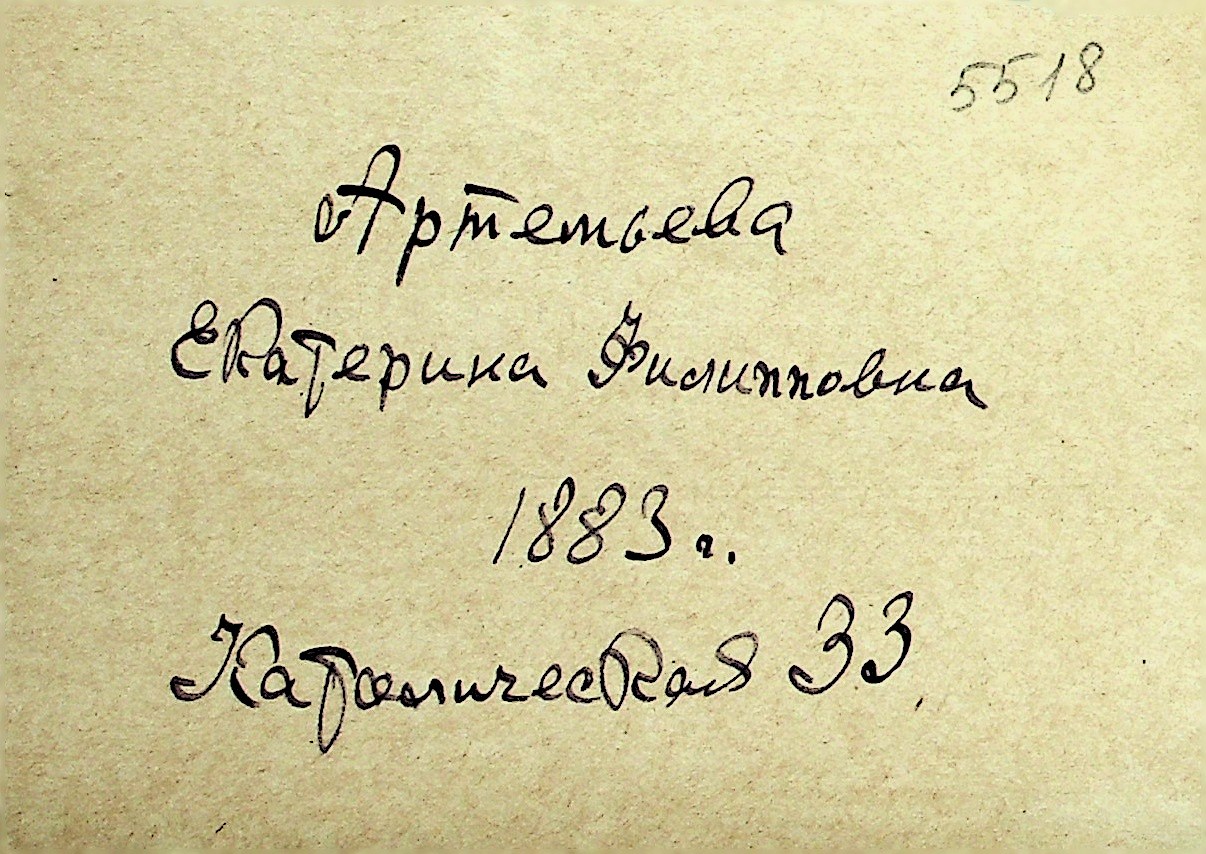 5518
Артемьева
Екатерина Филипповна
1883 г.
Католическая 33